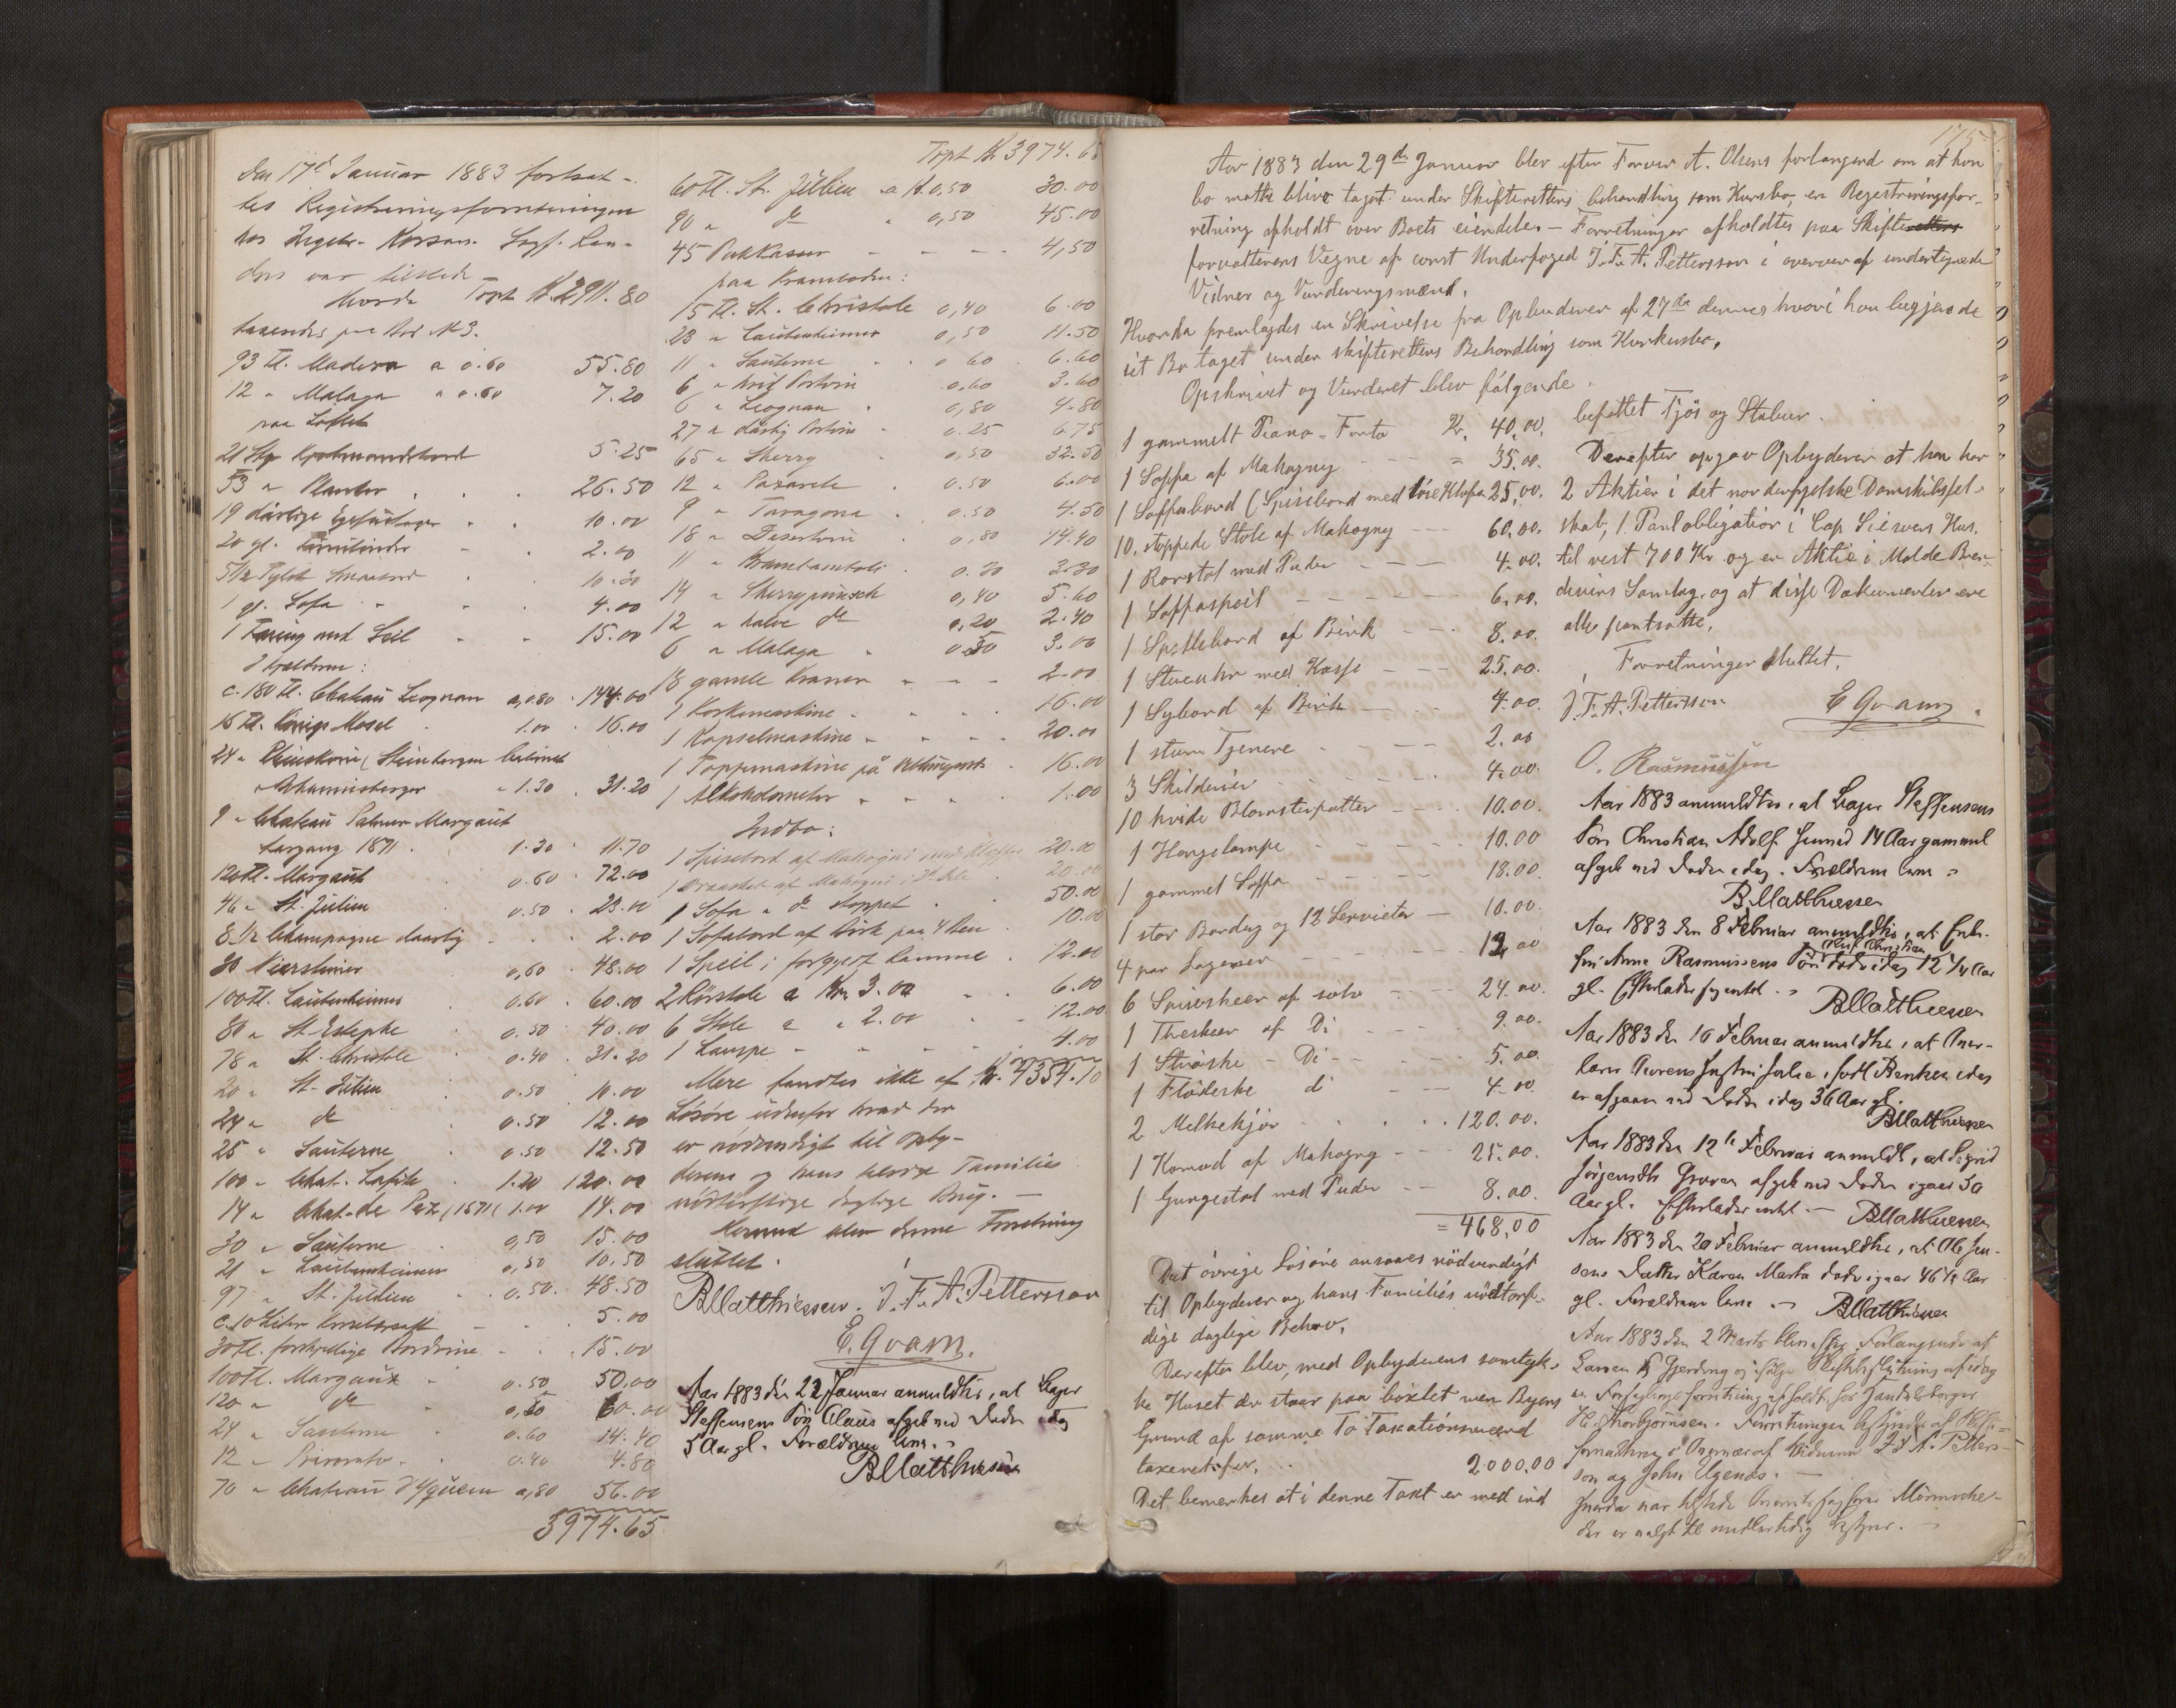 Den 17de Januar 1883 fortsat-
tes Registreringsforretningen
hos
var tilstede
Hvorda Trpt Kr 2911.80
taxeredes paa No 3.
93 Fl. Madera a 0.60 55.80
12 " Malaga " 0.60 7.20
paa Loftet
21 Stkr 5.25
53 " Planker 26.50
19 dårlige 10.00
20 gl. 2.00
5 1/2 Tylvt 10.30
1 gl. Sofa 4.00
1 Færing med Seil 15.00
I Kjælderen:
c. 180 Fl. Chateau Leognan a 0,80 144.00
16 Fl. Mosel 1.00 16.00
24 " Rhinskvin (Steinberger Cabinet
Johannisberger 1.30 31.20
9 " Chateau Palmer Margaux
Aargang 1871 1.30 11.70
120 Fl. Margaux 0.60 72.00
46 " St. Julien 0.50 23.00
8 1/2 Champagne daarlig 2.00
80 Niersteiner 0,60 48.00
100 Fl. Laubenheimer 0.60 60.00
80 " St Estephe 0.50 40.00
78 " St. Christole 0.40 31.20
20 " St. Julien 0.50 10.00
24 " do 0.50 12.00
25 " Sauterne 0.50 12.50
100 " Chat. Lafite 1.20 120.00
14 " Chat. de Pez (1871) 1.00 14.00
30 " Sauterne 0,50 15.00
21 " Laubenheimer 0,50 10.50
97 " St. Julien 0.50 48.50
c. 10 Liter Kirsebærsaft 5.00
30 Fl. forskjellige Bordvine 15.00
100 Fl. Margaux 0.50 50.00
120 " do 0,50 60.00
24 " Sauterne 0.60 14.40
12 " Priorato 0.40 4.80
70 " Chateau d'Yquem 0,80 56.00
3974.65
Trpt Kr 3974.65
60 Fl. St. Julien a Kr. 0,50 30.00
90 " do " 0,50 45.00
45 Pakkasser 4,50
paa Kramboden:
15 Fl. St. Christole 0,40 6.00
23 " Laubenheimer 0,50 11.50
11 " Sauterne 0 60 6.60
6 " hvid Portvin 0.60 3.60
6 " Leognan 0,80 4.80
27 " dårlig Portvin 0.25 6.75
65 " Sherry 0,50 32.50
12 " Paxarete 0.50 6.00
9 " Taragona 0.50 4.50
18 " Desertvin 0,80 14.40
11 " Krambambuli 0.30 3.30
14 " Sherrypunsch 0,40 5.60
12 " halve do 0,20 2.40
6 " Malaga 0.50 3.00
18 gamle Kraner 2.00
1 Korkemaskine 16.00
1 Kapselmaskine 20.00
1 Tappemaskine på 16.00
1 Alkoholometer 1.00
Indbo:
1 Spisebord af Mahogni med Klaffer 20.00
1 af Mahogni i 20.00
1 Sofa " do stoppet 50.00
1 Sofabord af Birk paa 4 Ben 10.00
1 Speil i forgyldt Ramme 12.00
2 Rørstole a Kr 3.00 6.00
6 Stole a " 2.00 12.00
1 Lampe 4.00
Mere fandtes ikke af Kr. 4354.10
Løsøre udenfor hvad der
er nødvendigt til Opby-
deren og hans Families
nødtørftige daglige Brug. —
Hermed blev denne Forretning
sluttet.
BMatthiessen. J. F. A. Petterson
E. Gvam.
Aar 1883 den 22 Januar anmeldtes, at Lager
Steffensens Søn Claus afgik ved Døden idag
5 Aar gl. Forældrene leve.
BMatthiessen
175
Aar 1883 den 29de Januar blev efter Farver A. Olsens forlangend om at hans
bo maatte blive taget under Skifterettens behandling som Kursbo, en Registreringsfor-
retning afholdt over Boets eiendeler — Forretningen afholdtes paa Skifterettens
forvalterens Vegne af const Underfoged J. F. A. Petterson i overvær af undertegnede
Vidner og Vurderingsmænd.
Hvorda fremlagdes en Skrivelse fra Opbuderen af 27de dennes hvori han begjærede
sit Bo taget under skifterettens Behandling som Konkursbo.
Opskrivet og Vurderet blev følgende.
1 gammelt Piano-Forto Kr. 40,00.
1 Soppa af Mahogny 35,00.
1 Soffabord (Spisebord med løse Klapper 25,00.
10. stoppede Stole af Mahogny 60,00.
1 Rorstol med Puder 4,00.
1 Soffaspeil 6,00.
1 Spillebord af Birk 8.00.
1 Stueuhr med Kasse 25.00.
1 Sybord af Birk 4.00.
1 stum Tjenere 2.00
3 Skilderier 4.00.
10 hvide Blomsterpotter 10.00.
1 Hangelampe 10.00
1 gammel Soffa 18.00.
1 stor Bordug og 12 Servieter 10.00.
4 par Lagener 12,00
6 Spiseskeer af solv 24.00.
1 Theskeer af Di 9.00.
1 Ströske — Di 5.00.
1 Flödeske di 4.00.
2 Melkekjör 120.00.
1 Komod af Mahogny 25.00.
1 Gungestol med Puder 8.00.
= 468,00
Det övrige Lösöre ansaaes nödvendigt
til Opbyderen og hans Families nödtörf-
dige daglige Behov.
Derefter blev, med Opbyderens samtyk-
ke Huset der staar paa böxlet uen Byens
Grund af samme To Taxationsmænd
taxeret for, 2.000,00
Det bemerkes at i denne Taxt er med ind
befattet Fjös og Stabur.
Derefter opgav Opbyderen at han har
2 Aktier i det nordenfjelske Damskibssel-
skab, 1 Pantobligation i Cap Siewers Hus.
til rest 700 Kr og en Aktie i Molde Bræn-
devins Samlag, og at disse Dokumenter ere
alle pantsatte.
Forretningen Sluttet.
J. F. A. Petterson E Gvam.
O. Rasmussen
Aar 1883 anmeldtes, at Lager Steffensens
Søn Christian Adolf 14 Aar gammel
afgik ved Døden idag. Forældrene leve.
BMatthiessen
Aar 1883 den 8 Februar anmeldtes, at Enke-
fru Anna Rasmussens Søn døde idag 12 1/4 Aar
gl. Efterlader sig intet. BMatthiessen
Aar 1883 den 10 Februar anmeldtes, at
født
er afgaaen ved Døden idag 36 Aar gl.
BMatthiessen
Aar 1883 den 12te Februar anmeldt, at Sigrid
afgik ved Døden igaar 50
Aar gl. Efterlader intet. — BMatthiessen
Aar 1883 den 20 Februar anmeldtes, at Ole Jen-
sens Datter Karen Marta døde igaar 4 6/12 Aar
gl. Forældrene leve BMatthiessen
Aar 1883 den 2 Marts blev efter Forlangende af
Larsen & Gjerding og ifølge af idag
en afholdt hos Handelsborger
H. Thorbjørnsen. Forretningen af
i Overvær af Vidnerne J. F. A. Petter-
son og John Ugenæs. —
Hvorda var tilstede
der er valgt til midlertidig